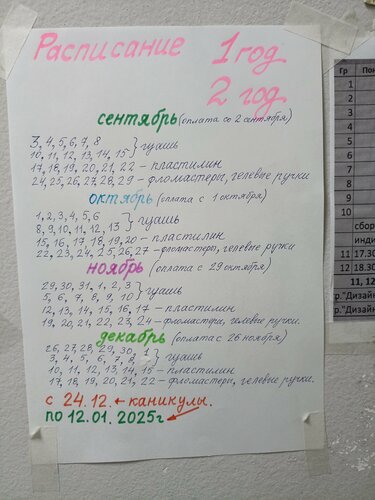 Расписание 1 год
2 год
сентябрь (оплата со 2 сентября)
3, 4, 5, 6, 7, 8
10, 11, 12, 13, 14, 15 } гуашь
17, 18, 19, 20, 21, 22 – пластилин
24, 25, 26, 27, 28, 29 – фломастеры, гелевые ручки
октябрь (оплата с 1 октября)
1, 2, 3, 4, 5, 6
8, 9, 10, 11, 12, 13 } гуашь
15, 16, 17, 18, 19, 20 – пластилин
22, 23, 24, 25, 26, 27 – фломастеры, гелевые ручки
ноябрь (оплата с 29 октября)
29, 30, 31, 1, 2, 3
5, 6, 7, 8, 9, 10 } гуашь
12, 13, 14, 15, 16, 17 – пластилин
19, 20, 21, 22, 23, 24 – фломастера, гелевые ручки.
декабрь (оплата с 26 ноября)
26, 27, 28, 29, 30, 1
3, 4, 5, 6, 7, 8 } гуашь
10, 11, 12, 13, 14, 15 – пластилин
17, 18, 19, 20, 21, 22 – фломастеры, гелевые ручки.
с 24.12. ← каникулы.
по 12.01.2025г
Гр Пон
1
2
3
5
6
7
8
9
10
сбор
инди
11 17.30
12 18.30
11, 12
гр."Дизайн
гр."Дизайн